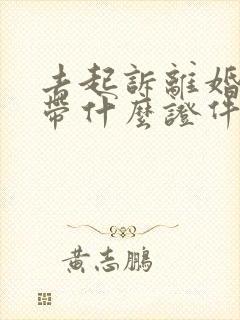 去起訴離婚
帶什麼證件
黃志鵬